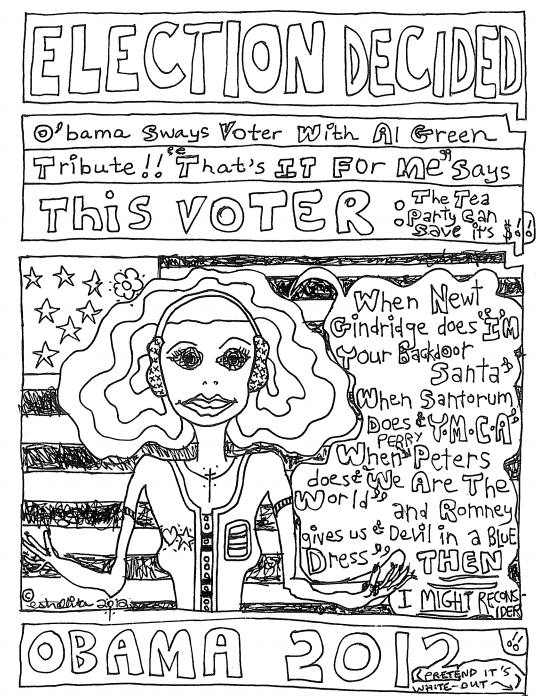 ELECTION DECIDED
O'bama Sways Voter With Al Green
Tribute!! "That's IT For Me" Says
This VOTER:
The Tea
Party Can
Save it's
$!!
When Newt
Gindridge does "I'M
Your Backdoor
Santa"
When Santorum
Does "Y.M.C.A"
PERRY
When Peters
does "We Are The
World"
and Romney
gives us "Devil in a BLUE
Dress" THEN
I MIGHT RECONS-
IDER
© estrelita 2012
OBAMA 2012
(PRETEND IT'S
WHITE-OUT~)